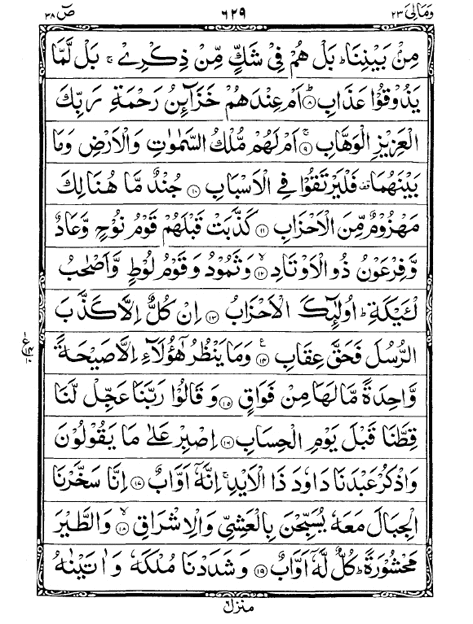 ومالی ۲۳ ۶۲۹ ص ۳۸
مِنْۢ بَيْنِنَا ؕ بَلْ هُمْ فِيْ شَكٍّ مِّنْ ذِكْرِيْ ۚ بَلْ لَّمَّا
يَذُوْقُوْا عَذَابِ ؕ ۸ اَمْ عِنْدَهُمْ خَزَآئِنُ رَحْمَةِ رَبِّكَ
الْعَزِيْزِ الْوَهَّابِ ۚ ۹ اَمْ لَهُمْ مُّلْكُ السَّمٰوٰتِ وَالْاَرْضِ وَمَا
بَيْنَهُمَا ۫ فَلْيَرْتَقُوْا فِي الْاَسْبَابِ ۱۰ جُنْدٌ مَّا هُنَالِكَ
مَهْزُوْمٌ مِّنَ الْاَحْزَابِ ۱۱ كَذَّبَتْ قَبْلَهُمْ قَوْمُ نُوْحٍ وَّعَادٌ
وَّفِرْعَوْنُ ذُو الْاَوْتَادِ ۙ ۱۲ وَثَمُوْدُ وَقَوْمُ لُوْطٍ وَّاَصْحٰبُ
لْئَيْكَةِ ؕ اُولٰٓئِكَ الْاَحْزَابُ ۱۳ اِنْ كُلٌّ اِلَّا كَذَّبَ
الرُّسُلَ فَحَقَّ عِقَابِ ۧ ۱۴ وَمَا يَنْظُرُ هٰٓؤُلَآءِ اِلَّا صَيْحَةً
وَّاحِدَةً مَّا لَهَا مِنْ فَوَاقٍ ۱۵ وَقَالُوْا رَبَّنَا عَجِّلْ لَّنَا
قِطَّنَا قَبْلَ يَوْمِ الْحِسَابِ ۱۶ اِصْبِرْ عَلٰى مَا يَقُوْلُوْنَ
وَاذْكُرْ عَبْدَنَا دَاوٗدَ ذَا الْاَيْدِ ۚ اِنَّهٗۤ اَوَّابٌ ۱۷ اِنَّا سَخَّرْنَا
الْجِبَالَ مَعَهٗ يُسَبِّحْنَ بِالْعَشِيِّ وَالْاِشْرَاقِ ۙ ۱۸ وَالطَّيْرَ
مَحْشُوْرَةً ؕ كُلٌّ لَّهٗۤ اَوَّابٌ ۱۹ وَشَدَدْنَا مُلْكَهٗ وَاٰتَيْنٰهُ
منزل